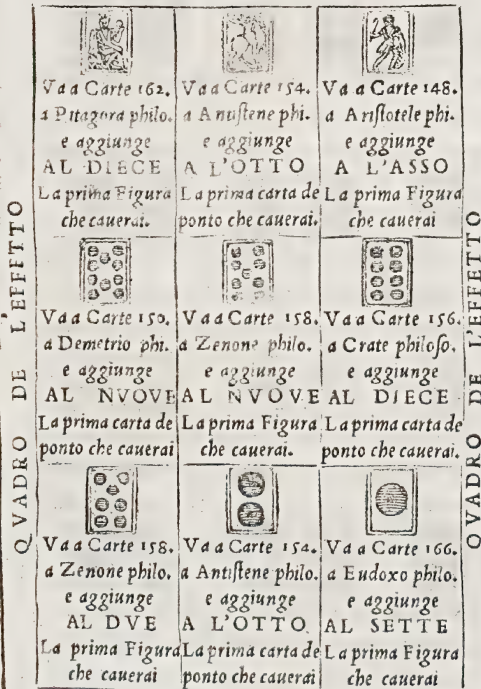 QVADRO DE L'EFFETTO
Va a Carte 162.
a Pitagora philo.
e aggiunge
AL DIECE
La prima Figura
che cauerai.
Va a Carte 154.
a Antistene phi.
e aggiunge
A L'OTTO
La prima carta de
ponto che cauerai.
Va a Carte 148.
a Aristotele phi.
e aggiunge
A L'ASSO
La prima Figura
che cauerai
Va a Carte 150.
a Demetrio phi.
e aggiunge
AL NVOVE
La prima carta de
ponto che cauerai
Va a Carte 158.
a Zenone philo.
e aggiunge
AL NVOVE
La prima Figura
che cauerai.
Va a Carte 156.
a Crate philoso.
e aggiunge
AL DIECE
La prima carta de
ponto che cauerai.
Va a Carte 158.
a Zenone philo.
e aggiunge
AL DVE
La prima Figura
che cauerai
Va a Carte 154.
a Antistene philo.
e aggiunge
A L'OTTO
La prima carta de
ponto che cauerai
Va a Carte 166.
a Eudoxo philo.
e aggiunge
AL SETTE
La prima Figura
che cauerai
QVADRO DE L'EFFETTO